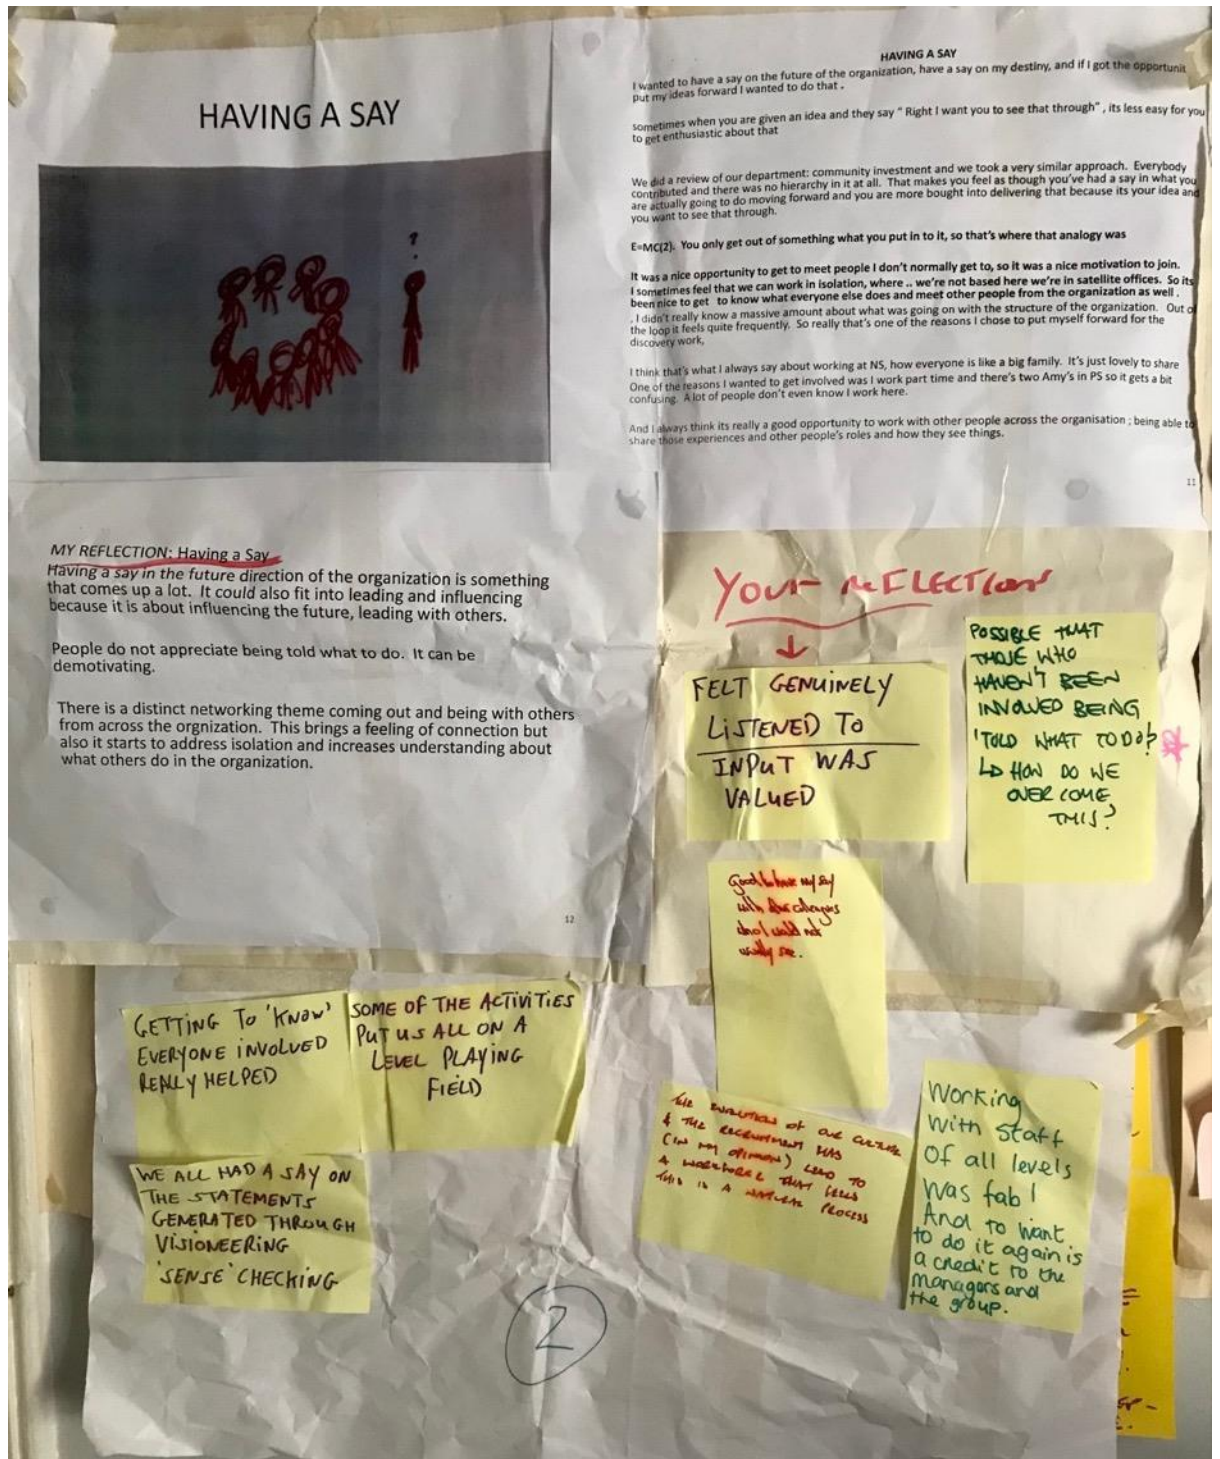 HAVING A SAY
?
HAVING A SAY
I wanted to have a say on the future of the organization, have a say on my destiny, and if I got the opportunit
put my ideas forward I wanted to do that .
sometimes when you are given an idea and they say " Right I want you to see that through" , its less easy for you
to get enthusiastic about that
We did a review of our department: community investment and we took a very similar approach. Everybody
contributed and there was no hierarchy in it at all. That makes you feel as though you've had a say in what you
are actually going to do moving forward and you are more bought into delivering that because its your idea and
you want to see that through.
E=MC(2). You only get out of something what you put in to it, so that's where that analogy was
It was a nice opportunity to get to meet people I don't normally get to, so it was a nice motivation to join.
I sometimes feel that we can work in isolation, where .. we're not based here we're in satellite offices. So its
been nice to get to know what everyone else does and meet other people from the organization as well .
. I didn't really know a massive amount about what was going on with the structure of the organization. Out of
the loop it feels quite frequently. So really that's one of the reasons I chose to put myself forward for the
discovery work,
I think that's what I always say about working at NS, how everyone is like a big family. It's just lovely to share
One of the reasons I wanted to get involved was I work part time and there's two Amy's in PS so it gets a bit
confusing. A lot of people don't even know I work here.
And I always think its really a good opportunity to work with other people across the organisation ; being able to
share those experiences and other people's roles and how they see things.
11
MY REFLECTION: Having a Say
Having a say in the future direction of the organization is something
that comes up a lot. It could also fit into leading and influencing
because it is about influencing the future, leading with others.
People do not appreciate being told what to do. It can be
demotivating.
There is a distinct networking theme coming out and being with others
from across the orgnization. This brings a feeling of connection but
also it starts to address isolation and increases understanding about
what others do in the organization.
12
YOUR REFLECTIONS
FELT GENUINELY
LISTENED TO
INPUT WAS
VALUED
POSSIBLE THAT
THOSE WHO
HAVEN'T BEEN
INVOLVED BEING
'TOLD WHAT TO DO'?
HOW DO WE
OVERCOME
THIS?
Good to have my say
with colleagues
who I would not
usually see.
GETTING TO 'KNOW'
EVERYONE INVOLVED
REALLY HELPED
SOME OF THE ACTIVITIES
PUT US ALL ON A
LEVEL PLAYING
FIELD
WE ALL HAD A SAY ON
THE STATEMENTS
GENERATED THROUGH
VISIONEERING
'SENSE' CHECKING
THE EVOLUTION OF OUR CULTURE
& THE RECRUITMENT HAS
(IN MY OPINION) LEAD TO
A WORKFORCE THAT FEELS
THIS IS A NATURAL PROCESS
Working
with staff
of all levels
was fab!
And to want
to do it again is
a credit to the
managers and
the group.
2